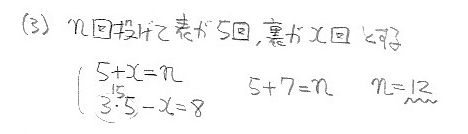 (3) n回投げて表が5回,裏がx回とする
5+x=n
15
3・5-x=8
5+7=n n=12